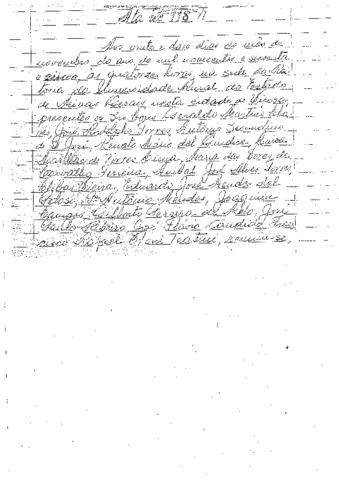 Ata nº 118
Aos vinte e dois dias do mês de
novembro do ano de mil novecentos e sessenta
e cinco, às quatorze horas, na sede da Rei-
toria da Universidade Rural do Estado
de Minas Gerais, nesta cidade de Viçosa,
presentes os Srs. Geraldo Martins Cha-
ves, José Rodolpho Torres, Antônio Secundino
de S. José, Renato Mário del Giudice,
de Torres Lima, Maria das Dores de
Carvalho Ferreira, Aníbal José Alves Torres,
Vieira, Eduardo José Mendes del
Antônio Mendes, Joaquim
Campos, Gilberto Pereira de Melo, José
Paulo Ribeiro, José Flávio Candido, Fran-
cisco Teatini, reuniu-se,